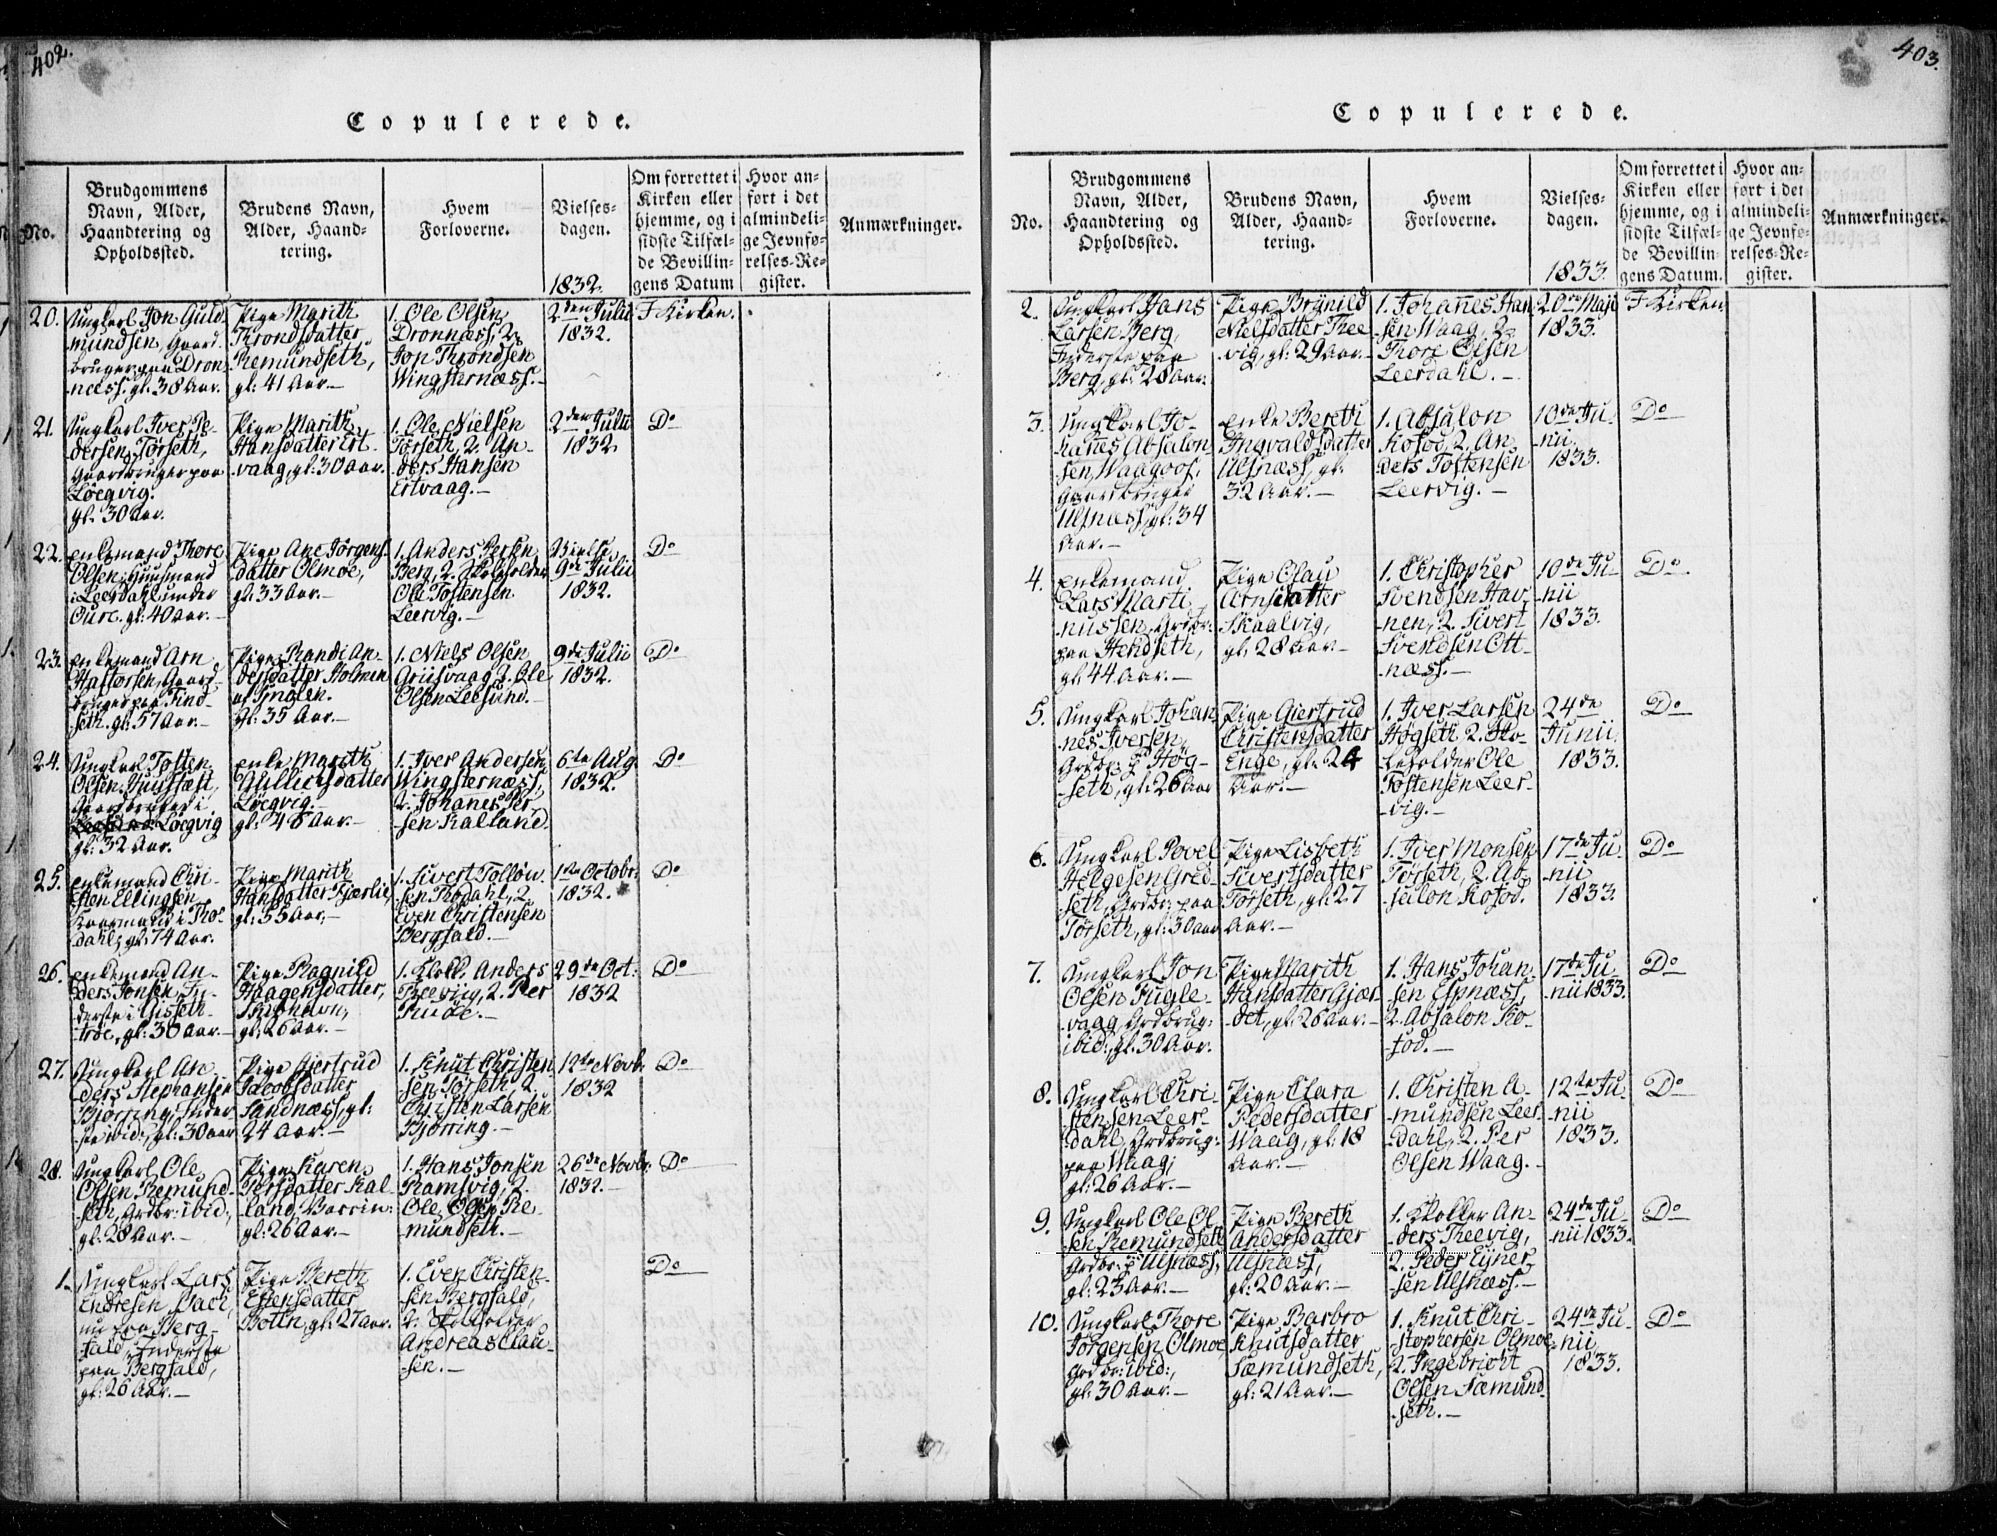 402.
Copulerede.
No.
Brudgommens
Navn, Alder,
Haandtering og
Opholdssted.
Brudens Navn,
Alder, Haand-
tering.
Hvem
Forloverne.
Vielses-
dagen.
1832.
Om forrettet i
Kirken eller
hjemme, og i
sidste Tilfæl-
de Bevillin-
gens Datum
Hvor an-
ført i det
almindeli-
ge Jevnfø-
relses-Re-
gister.
Anmærkninger.
20.
Ungkarl Jon Guld
mundsen, Gaard
bruger paa Dron
næss. gl: 38 Aar.
Pige Marith
Throndsdatter
Remundseth,
gl: 41 Aar.-
1. Ole Olsen
Dronnæss, 2.
Jon Throndsen
Wingsternæss.-
2den Julii
1832.
I Kirken.
21.
Ungkarl Iver Pe-
dersen Tørseth,
Gaardbruger paa
Löegvig.
gl: 30 Aar.
Pige Marith
Hansdatter Ert-
vaag, gl: 30 Aar.
1. Ole Nielsen
Tørseth, 2. An-
ders Hansen
Ertvaag.-
2den Julii
1832.
Do
22.
Enkemand Thore
Olsen, Huusmand
i Leerdahl under
Oure. gl: 40 Aar.-
Pige Ane Jörgens
datter Olmoe,
gl: 33 Aar.-
1. Anders Persen
Berg, 2. Skoleholder
Ole Tostensen
Leervig.-
9de Julii
1832.
Do
23.
Enkemand Arn
Haftorsen, Gaard
bruger paa Find-
seth. gl: 57 Aar.-
Pige Randi An-
dersdatter Holmen
af Tinglen.
gl: 35 Aar.-
1. Niels Olsen
Griisvaag, 2. Ole
Olsen Leesund.-
9de Julii
1832.
Do
24.
Ungkarl Tosten
Olsen
Gaardbruger i
Löegvig
gl: 32 Aar.
Enke Marith
Gullichsdatter
Löegvig.-
gl: 48 Aar.-
1. Iver Andersen
Wingsternæss,
2. Johanes Per
sen Kalland.
6te Aug
1832.
Do
25.
Enkemand Chri-
sten Ellingsen
Kaarmand i Tho
dahl, gl: 74 Aar.
Pige Marith
Hansdatter Fjærlie,
gl: 55 Aar,-
1. Sivert Tolløw-
sen Thodahl, 2.
Even Christensen
Bergfald.-
1te Octobr.
1832.
Do
26.
Enkemand An-
ders Jonsen, In-
derste i Gisseth
troe, gl: 30 Aar.-
Pige Ragnild
Haagensdatter,
gl: 26 Aar.-
1. Klokk. Anders
Theevig, 2. Per
29de Oct:
1832
Do
27.
Ungkarl An
ders Stephansen
Bjørring, Inder
ste ibid:, gl: 30 Aar
Pige Giertrud
Jacobsdatter
Sandnæss, gl:
24 Aar.-
1. Knut Christen
sen Tørseth, 2.
Christen Larsen
Bjørring.-
12te Novbr
1832
Do
28.
Ungkarl Ole
Olsen Remund-
seth, Grdbr: ibid:,
gl: 28 Aar.-
Pige Karen
Persdatter Kal-
land,
gl: 26 Aar.-
1. Hans Jonsen
Ramsvig, 2.
Ole Olsen Re-
mundseth.-
26de Novbr.
1832.-
Do
1.
Ungkarl Lars
Endresen
paa Berg-
fald, Inderste
paa Bergfald,
gl: 26 Aar.-
Pige Bereth
Estensdatter
Botln, gl: 27 Aar.
1. Even Christen-
sen Bergfald,
2. Skoleholder
Andreas Clau-
sen.-
Do
403.
Copulerede.
No.
Brudgommens
Navn, Alder,
Haandtering og
Opholdssted.
Brudens Navn,
Alder, Haand-
tering.
Hvem
Forloverne.
Vielses-
dagen.
1833.
Om forrettet i
Kirken eller
hjemme, og i
sidste Tilfæl-
de Bevillin-
gens Datum.
Hvor an-
ført i det
almindeli-
ge Jevnfø-
relses-Re-
gister.
Anmærkninger.
2.
Ungkarl Hans
Larsen Berg,
Inderste paa
Berg, gl: 28 Aar.
Pige Brynild
Nielsdatter Thee
vig, gl: 29 Aar.-
1. Johanes Han
sen Waag, 2.
Thore Olsen
Leerdahl.-
20de Maji
1833.
I Kirken.
3.
Ungkarl Jo-
hanes Absalon
sen Waagoos,
Gaardbruger
Ulsnæss, gl: 34
Aar.-
Enke Bereth
Ingvaldsdatter
Ulsnæss, gl:
32 Aar.-
1. Absalon
Kofod, 2. An-
ders Tostensen
Leervig.-
10de Ju-
nii
1833.
Do
4.
Enkemand
Lars Marti
nussen, Grdbr:
paa Hendseth,
gl: 44 Aar.-
Pige Olau
Arnsdatter
Skaalvig,
gl: 28 Aar.-
1. Christopher
Svendsen Hav-
nen, 2. Sivert
Svendsen Ott-
næss.-
10de Ju-
nii
1833.
Do.
5.
Ungkarl Johan
nes Iversen,
Grdbr: p Høg-
seth, gl: 26 Aar
Pige Giertrud
Christensdatter
Enge, gl: 24
Aar.-
1. Iver Larsen
Høgseth, 2. Sko-
leholder Ole
Tostensen Leer-
vig.-
24de
Junii
1833.
Do
6.
Ungkarl Povel
Helgesen Gred-
seth, Grdbr: paa
Tørseth, gl: 30 Aar
Pige Lisbeth
Sivertsdatter
Tørseth, gl: 27
Aar.-
1. Iver Monsen
Tørseth, 2. Ab-
salon Kofod.
17de Ju-
nii
1833.
Do
7.
Ungkarl Jon
Olsen Fugle-
vaag, Grdbrug:
ibid:, gl: 30 Aar.
Pige Marith
Hansdatter Gjær-
det, gl: 26 Aar.-
1. Hans Johan-
sen Espnæss,
2. Absalon Ko-
fod.-
17de Ju-
nii 1833.
Do
8.
Ungkarl Chri-
stensen Leer-
dahl, Grdbrug:
paa Waag,
gl: 26 Aar.-
Pige Clara
Pedersdatter
Waag, gl: 18
Aar.-
1. Christen A-
mundsen Leer-
dahl, 2. Per
Olsen Waag.-
12te Ju-
nii
1833.
Do
9.
Ungkarl Ole Ol-
sen Remundseth
Grdbr: p Ulsnæss,
gl: 23 Aar.-
Pige Bereth
Andersdatter
Ulsnæss,
gl: 20 Aar.-
1. Klokker An-
ders Theevig,
2. Peder Ejner
sen Ulsnæss.-
24de Ju-
nii 1833.
Do
10.
Ungkarl Thore
Jørgensen Olmoe,
Grdbr: ibid:,
gl: 30 Aar.-
Pige Barbro
Knutsdatter
Sæmundseth,
gl: 21 Aar.-
1. Knut Chri-
stophersen Olmoe,
2. Ingebricht
Olsen Sæmund
seth.-
24de Ju-
nii
1833.
Do